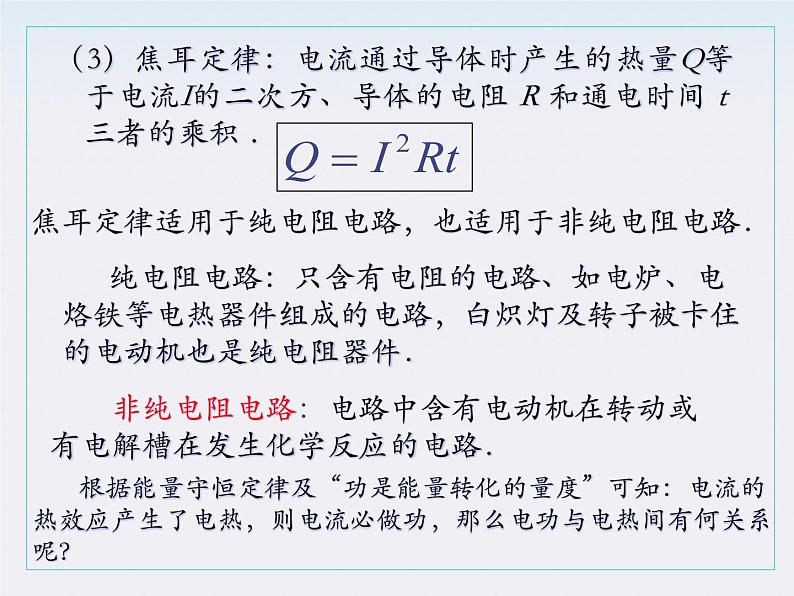 （3）焦耳定律：电流通过导体时产生的热量Q等
于电流I的二次方、导体的电阻 R 和通电时间 t
三者的乘积．
Q = I²Rt
焦耳定律适用于纯电阻电路，也适用于非纯电阻电路．
纯电阻电路：只含有电阻的电路、如电炉、电
烙铁等电热器件组成的电路，白炽灯及转子被卡住
的电动机也是纯电阻器件．
非纯电阻电路：电路中含有电动机在转动或
有电解槽在发生化学反应的电路．
根据能量守恒定律及“功是能量转化的量度”可知：电流的
热效应产生了电热，则电流必做功，那么电功与电热间有何关系
呢？